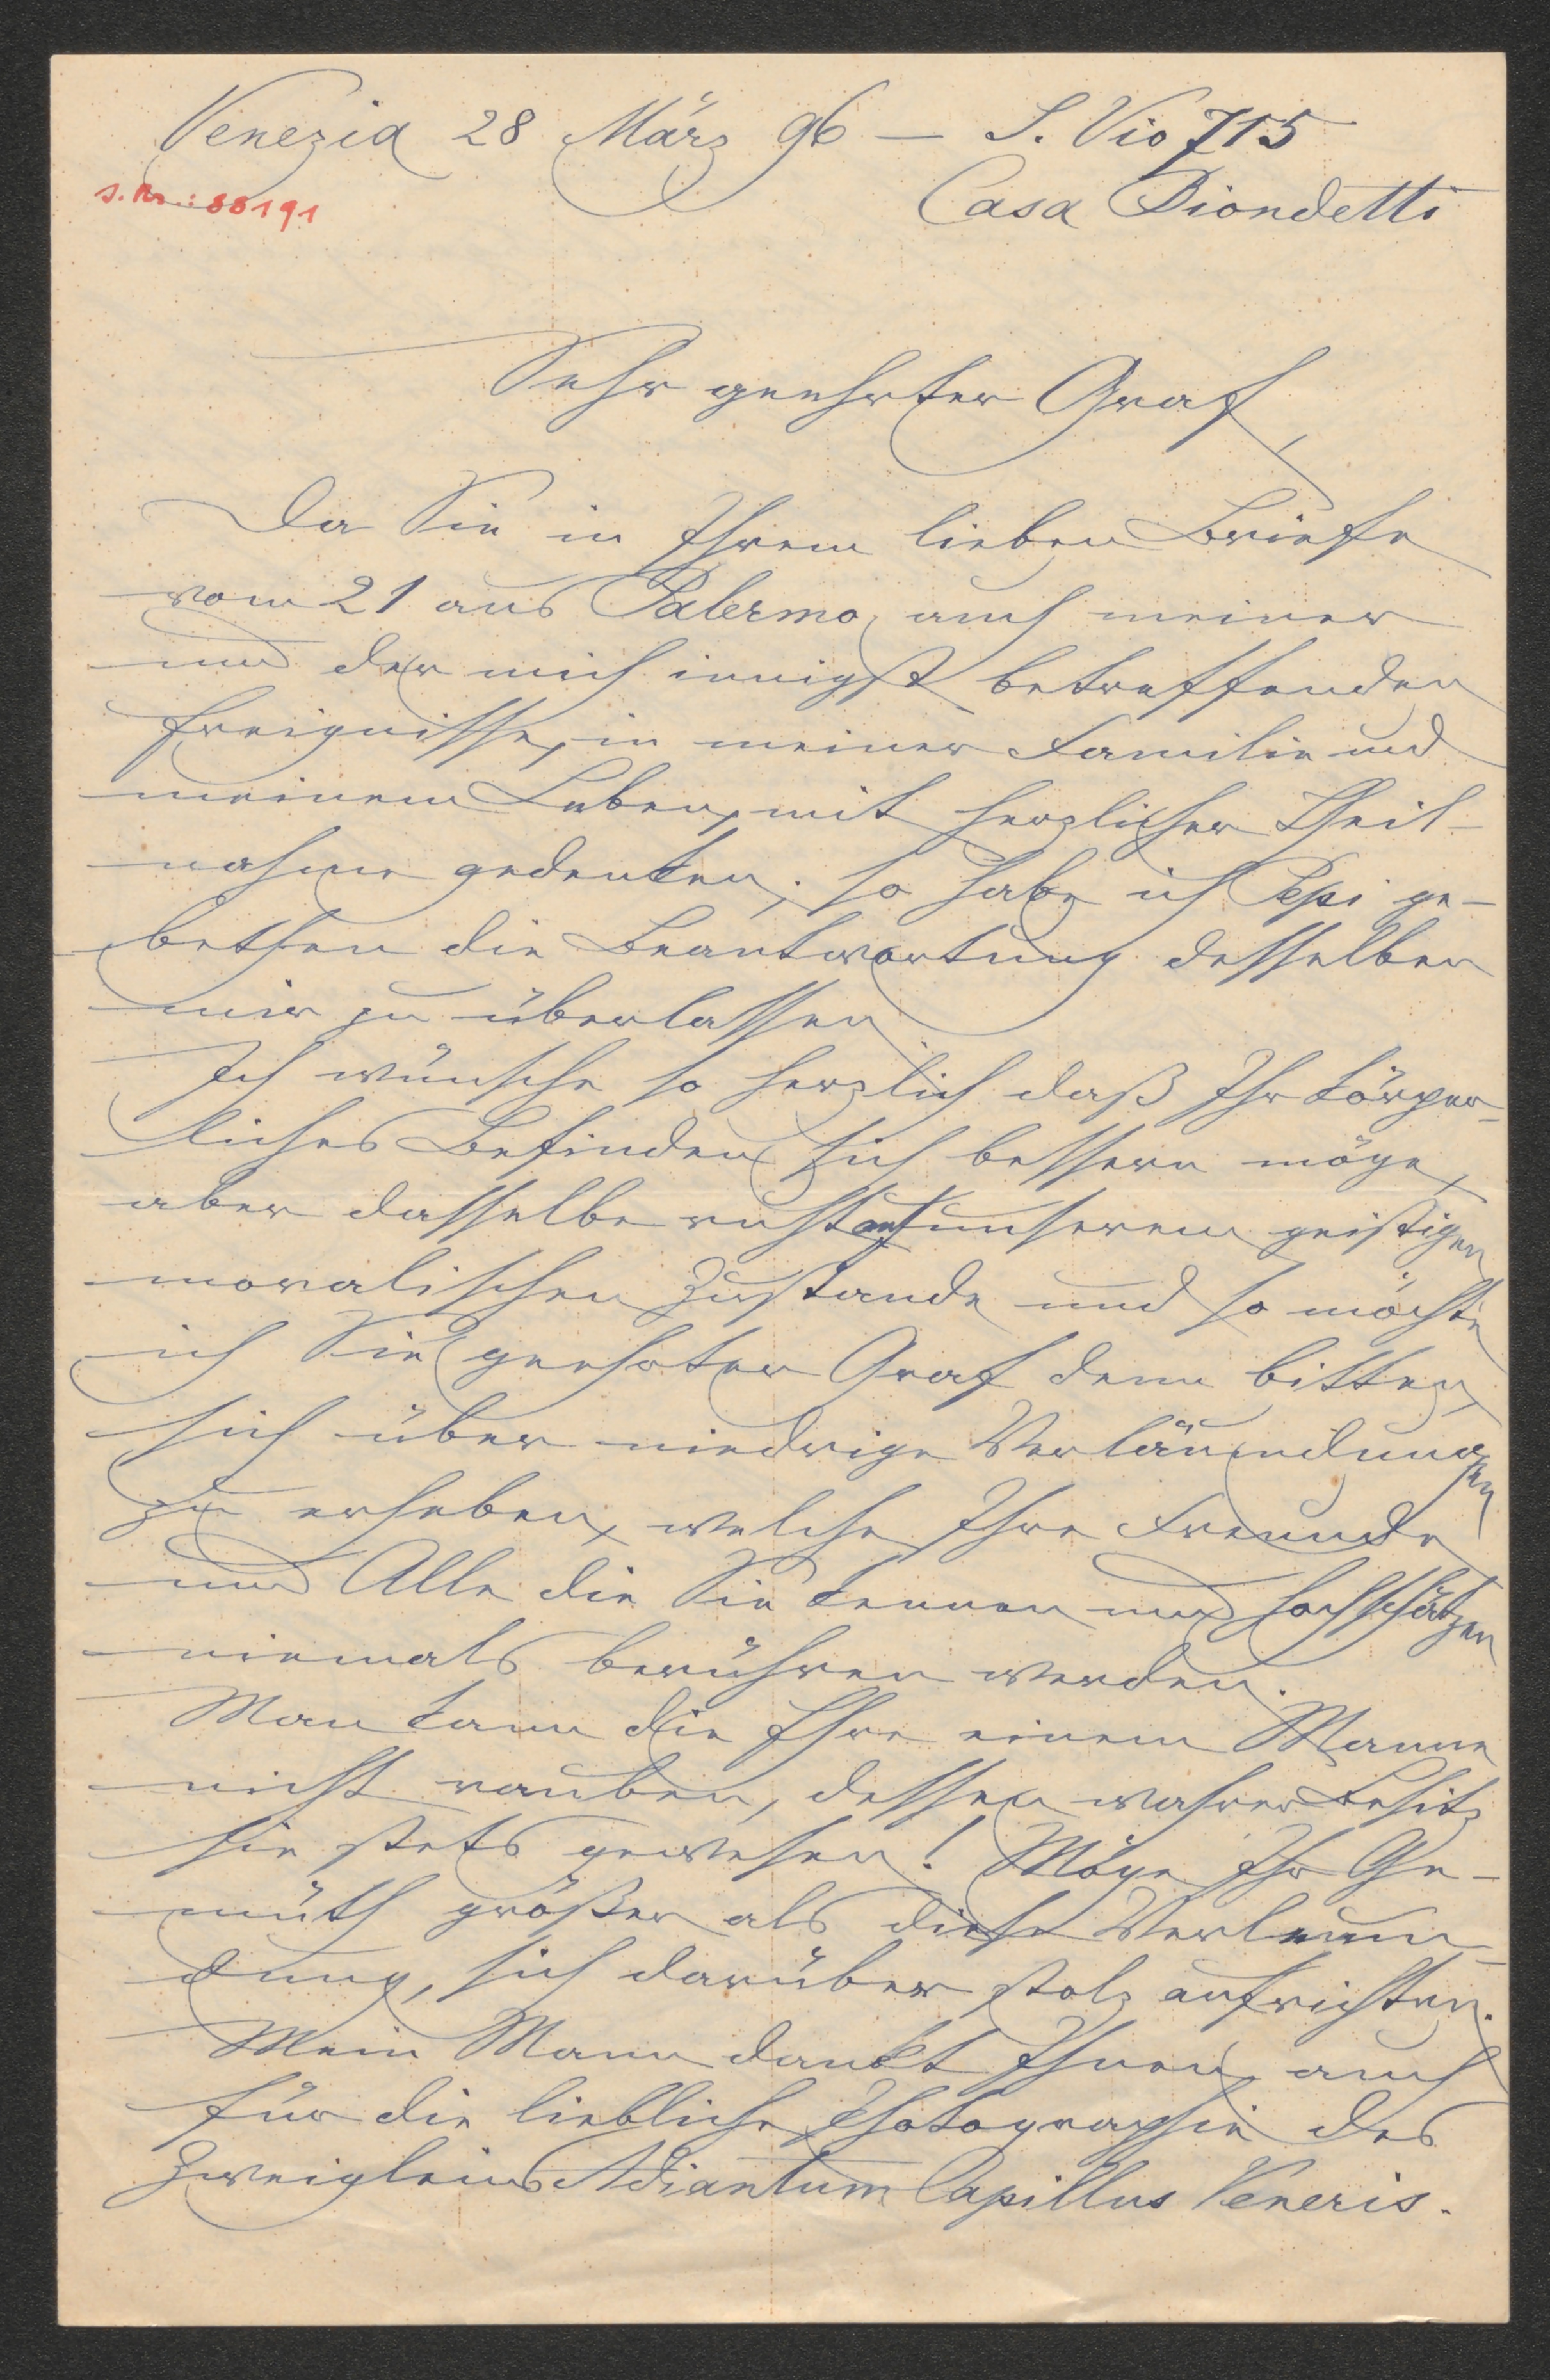 Venezia 28 März 96 — S. Vio 715
s. Nr.: 88191
Casa Biondetti
Sehr geehrter Graf,
Da Sie in Ihrem lieben Briefe
vom 21 aus Palermo, auch meiner
und der mich innigst betreffenden
Ereignisse, in meiner Familie und
meinem Leben, mit herzlicher Theil-
nahme gedenken; so habe ich Pepi ge-
bethen die Beantwortung desselben
mir zu überlassen
Ich wünsche so herzlich daß Ihr körper-
liches Befinden sich bessern möge,
aber dasselbe ruht auf unserem geistigen
moralischen Zustande und so möchte
ich Sie geehrter Graf denn bitten,
sich über niedrige Verläumdungen
zu erheben, welche Ihre Freunde
und Alle die Sie kennen und hochschätzen
niemals berühren werden.
Man kann die Ehre einem Manne
nicht rauben, dessen wahrer Besitz
sie stets gewesen! Möge Ihr Ge-
müth größer als diese Verleum-
dung, sich darüber stolz aufrichten.
Mein Mann dankt Ihnen auch
für die liebliche Photographie des
Zweigleins Adiantum Capillus Veneris.